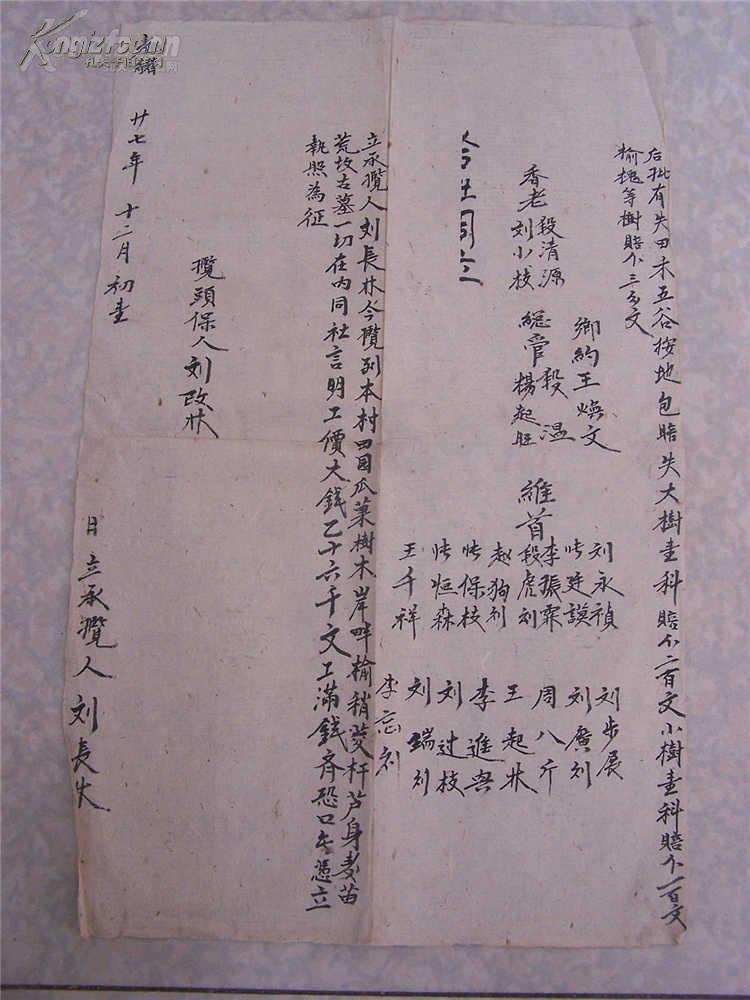 后批有失田禾五谷按地包赔失大樹壹科赔个二百文小樹壹科赔个一百文
榆槐等樹赔个三百文
鄉約王煥文
香老段清源 總管段温
刘小枝 楊起旺
維首
刘永禎 刘步展
李振霖 刘廣刘
段虎刘 周八斤
趙狗刘 王起狀
保枝 李進興
恒森 刘过枝
王千祥 刘瑞刘
李忘刘
合社同立
立承攬人刘長林今攬到本村田园瓜菓樹木岸畔榆稍茭杆芦身麦苗
荒坟古墓一切在内同社言明工價大錢乙十六千文工滿錢斉恐口無憑立
執照為征
攬頭保人刘政林
光緒廿七年十二月初壹日立承攬人刘長林
Kongfz.com
孔夫子旧书网